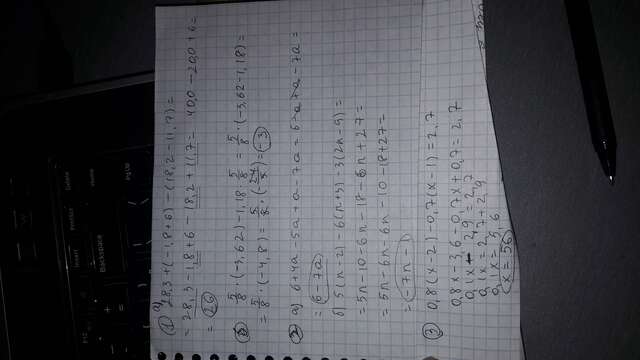 ① a) 28,3+(-1,8+6)-(18,2-11,7)=
= 28,3-1,8+6-18,2+11,7= 40,0-20,0+6=
= 26
б) 5/8·(-3,62)-1,18·5/8=5/8·(-3,62-1,18)=
=5/8·(-4,8)=5/8·(-24/5)=-3
② a) 6+4a-5a+a-7a=6+a-7a=
=6-7a
б) 5(n-2)-6(n+3)-3(2n-9)=
=5n-10-6n-18-6n+27=
=5n-6n-6n-10-18+27=
=-7n-1
③ 0,8(x-2)-0,7(x-1)=2,7
0,8x-3,6-0,7x+0,7=2,7
0,1x-2,9=2,7
0,1x=2,7+2,9
0,1x=5,6
x=56
Backspace